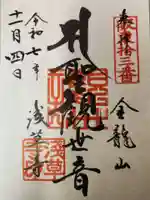 坂東拾三番
金龍山
聖観世音
浅草寺
令和七年
十一月四日